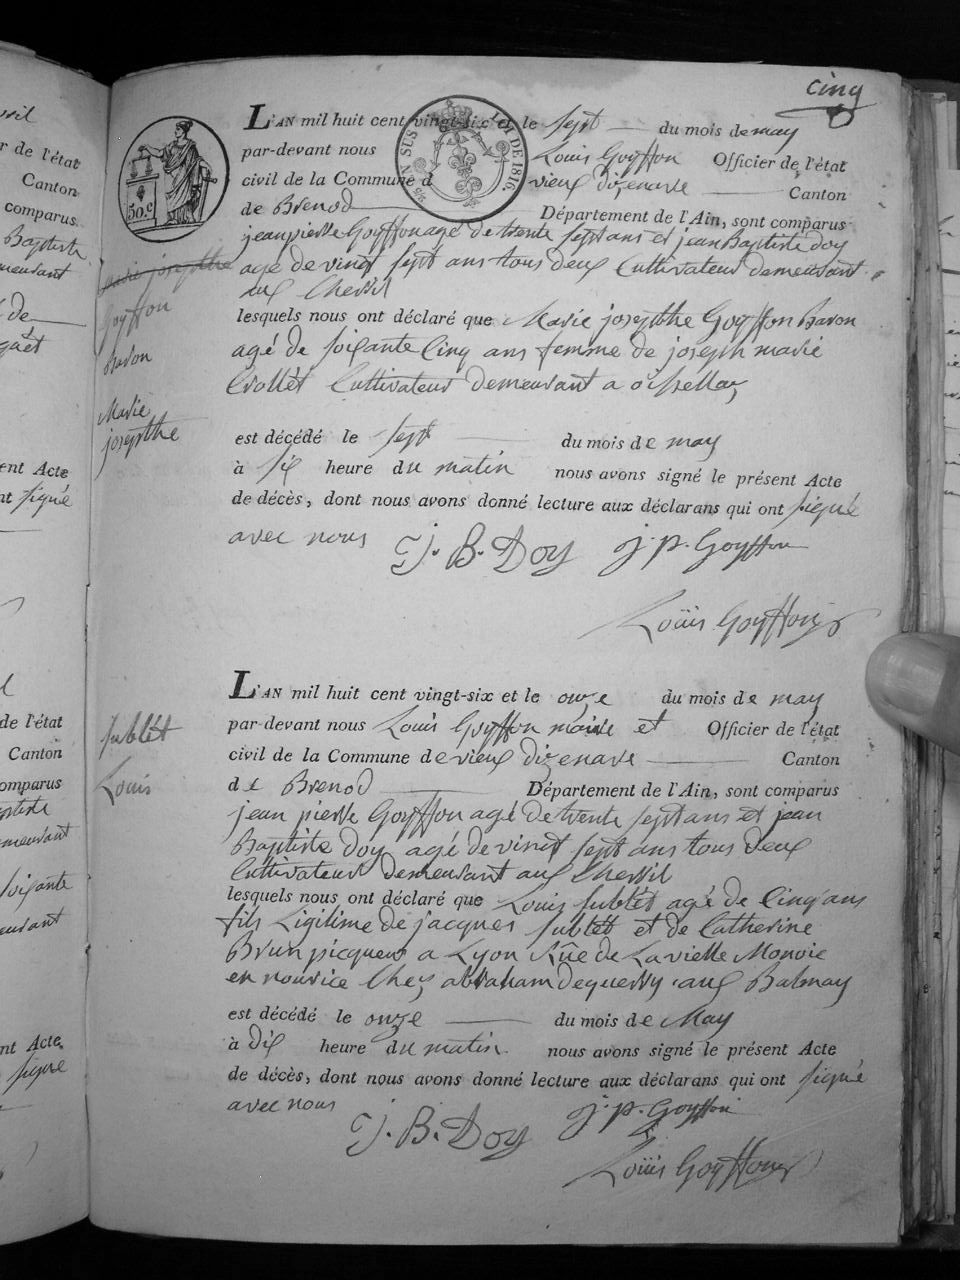 cinq
L'AN mil huit cent vingt-six et le sept du mois de may
par-devant nous Louis Goyffon Officier de l'état
civil de la Commune d vieux dizenave Canton
de Brenod Département de l'Ain, sont comparus
jean pierre Goyffon agé de trente sept ans et jean Baptiste doy
agé de vingt sept ans tous deux Cultivateur demeurant
aux Chevril
lesquels nous ont déclaré que Marie josephthe Goyffon Baron
agé de soixante Cinq ans femme de joseph marie
Crollet Cultivateur demeurant a
est décédé le sept du mois de may
à six heure du matin nous avons signé le présent Acte
de décès, dont nous avons donné lecture aux déclarans qui ont signé
avec nous J. B. Doy j. p. Goyffon
Louis Goyffon
Goyffon
Baron
Marie
josephthe
50.c
LOI DE 1816.
L'AN mil huit cent vingt-six et le onze du mois de may
par-devant nous Louis Goyffon maire et Officier de l'état
civil de la Commune de vieux dizenave Canton
de Brenod Département de l'Ain, sont comparus
jean pierre Goyffon agé de trente sept ans et jean
Baptiste doy agé de vingt sept ans tous deux
Cultivateur demeurant aux Chevril
lesquels nous ont déclaré que Louis Sublet agé de Cinq ans
fils Ligitime de jacques Sublet et de Catherine
Brun picqueur a Lyon Rûe de La vielle Monoie
en nourice Chez abraham Dequerry aux Balmay
est décédé le onze du mois de May
à dix heure du matin nous avons signé le présent Acte
de décès, dont nous avons donné lecture aux déclarans qui ont signé
avec nous J. B. Doy j. p. Goyffon
Louis Goyffon
Sublet
Louis